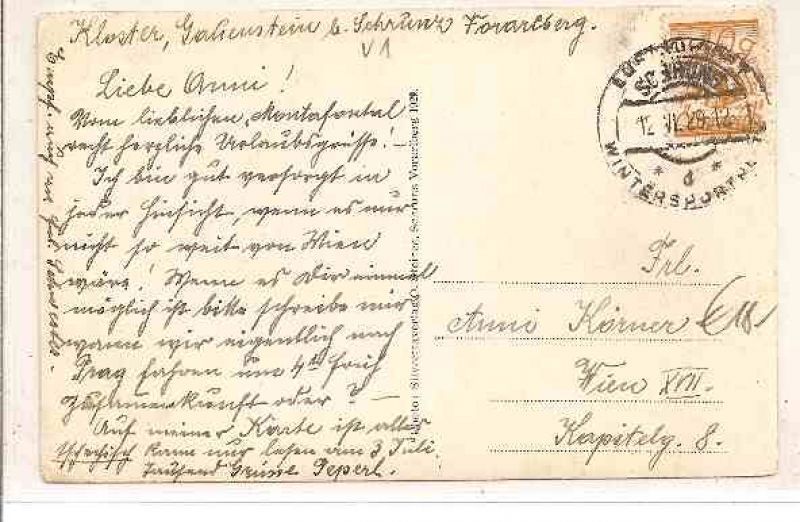 Kloster, Gauenstein b. Schrunz Vorarlberg.
V1
Liebe Anni!
Vom lieblichen, Montafontal
recht herzliche Urlaubsgrüsse! -
Ich bin gut versorgt in
jeder Hinsicht, wenn es nur
nicht so weit von Wien
wäre! Wenn es Dir einmal
möglich ist bitte schreibe mir
wann wir eigentlich nach
Prag fahren um 4 früh
Zusammenkunft oder? -
Auf meiner Karte ist alles
tschechisch kann nur lesen am 3 Juli.
Tausend Grüsse Peperl.
Schruns Vorarlberg 1929.
10g
SCHRUNS
12 VI 29 12
WINTERSPORTPL
* d *
Frl.
Anni Körner
Wien XVII.
Kapitelg. 8.